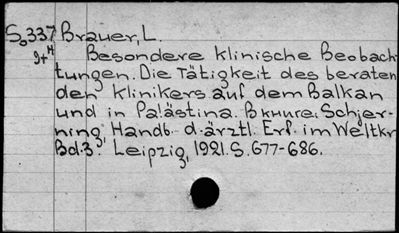 So337 Brauer, L.
9+H Besondere klinische Beobach-
tungen. Die Tätigkeit des beraten
den Klinikers auf dem Balkan
und in Palästina. В книге: Schjer-
ning, Handb. d. ärztl. Erf. im Weltkr
Bd.3. Leipzig, 1921. S. 677-686.